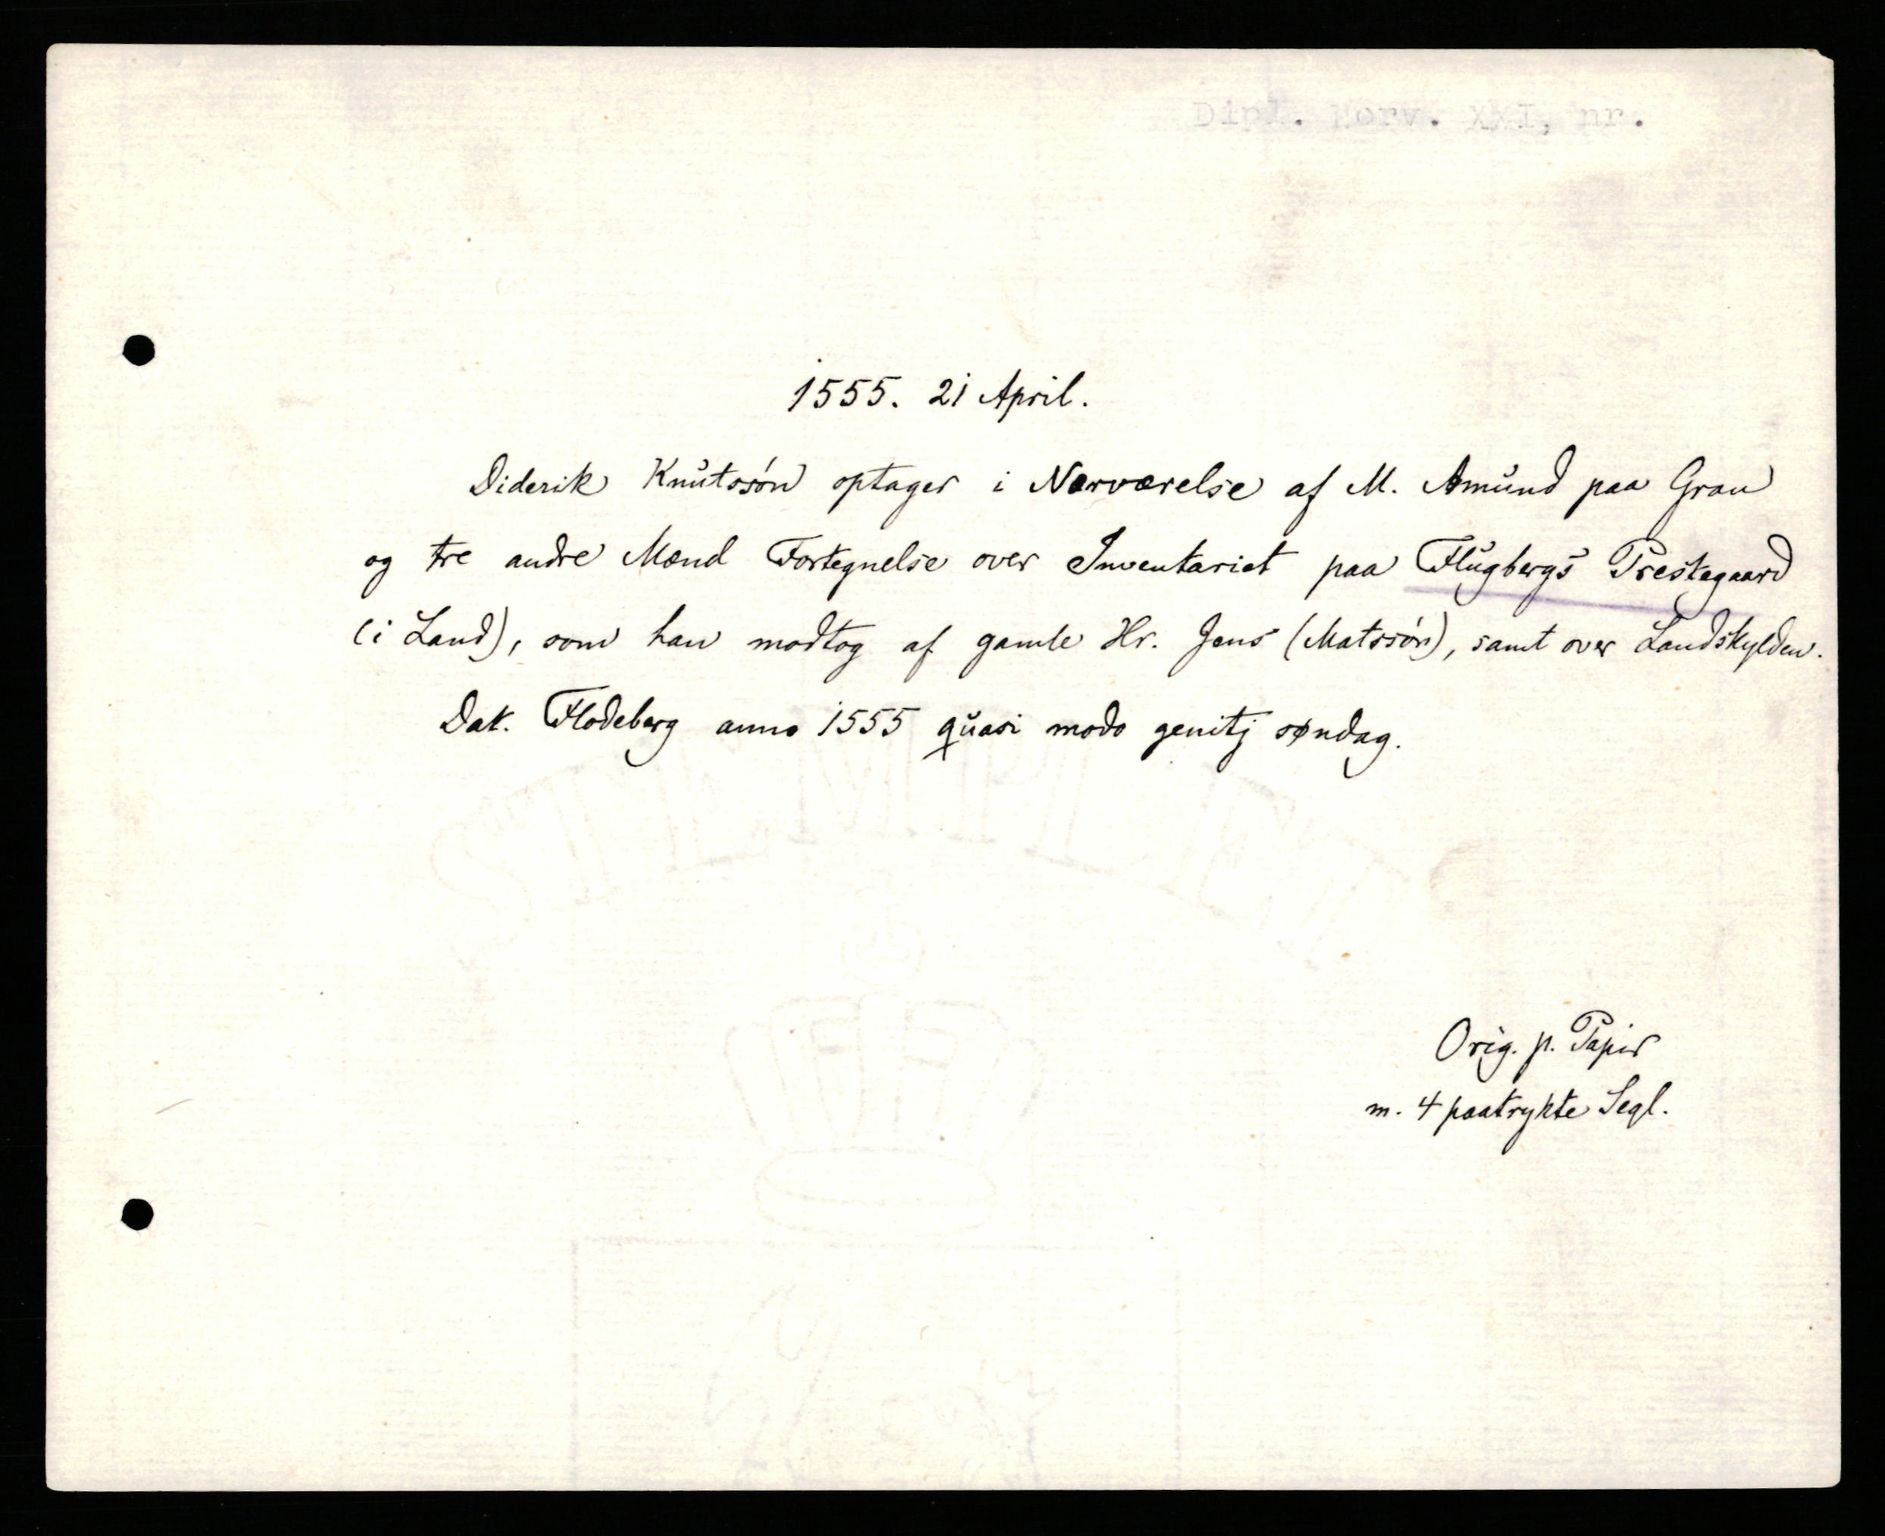 Dipl. Norv. XXI, nr.
1555. 21 April.
Diderik Knutssøn optager i Nærværelse af M. Amund paa Gran
og tre andre Mænd Fortegnelse over Inventariet paa Flugbergs Prestegaard
(i Land), som han modtog af gamle Hr. Jens (Matssøn), samt over Landskylden.
Dat. Flodeberg anno 1555 quasi modo genitj søndag.
Orig. p. Papir
m. 4 paatrykte Segl.